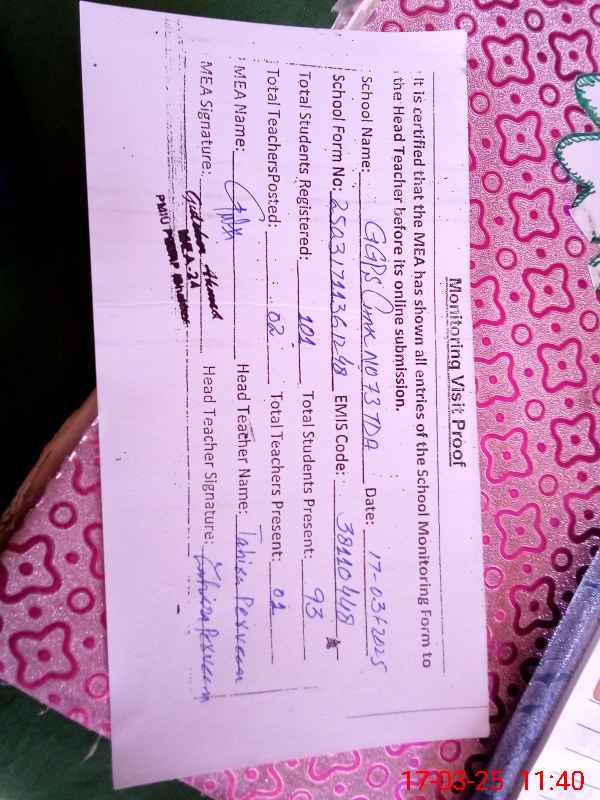 Monitoring Visit Proof
It is certified that the MEA has shown all entries of the School Monitoring Form to
the Head Teacher before its online submission.
School Name: GGPS Chak NO 73 TDA Date: 17-03-2025
School Form No: EMIS Code: 38110448
Total Students Registered: 101 Total Students Present: 93
Total Teachers Posted: 02 Total Teachers Present: 02
MEA Name: Head Teacher Name: Tahira Perveen
MEA Signature: Ahmad Head Teacher Signature: Tahira Perveen
MEA
PMIU
17-03-25 11:40